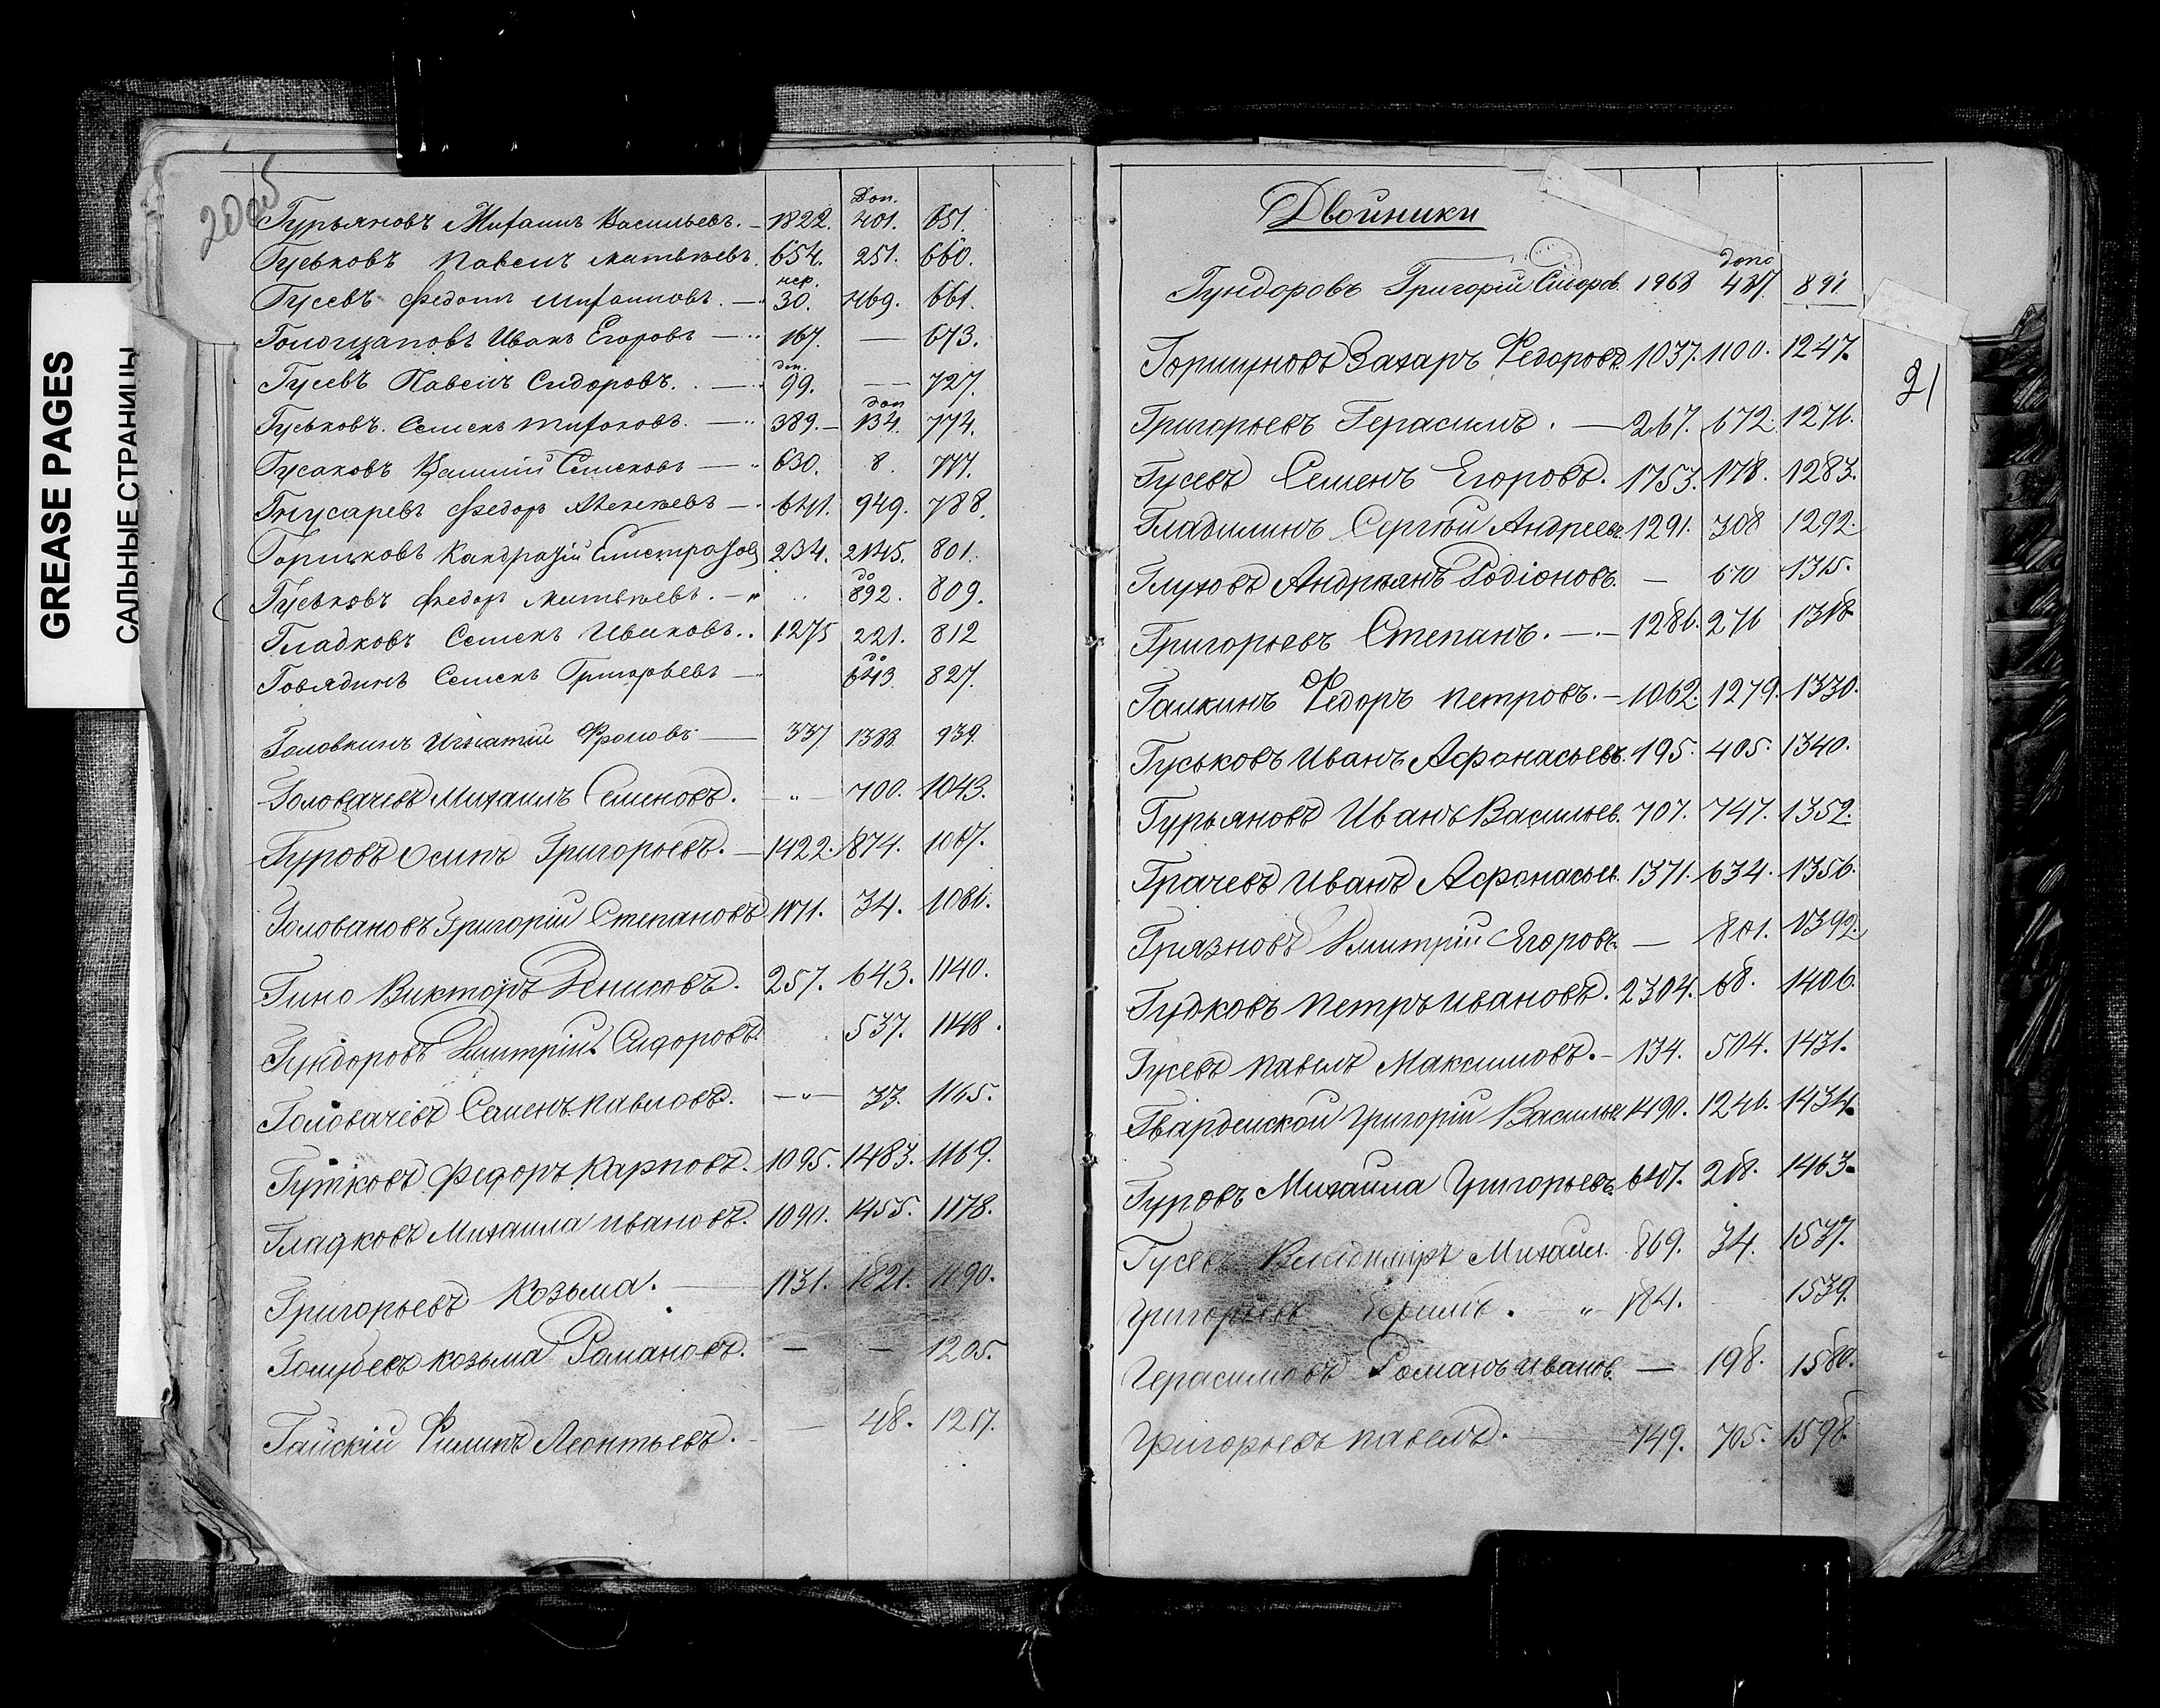 GREASE PAGES
САЛЬНЫЕ СТРАНИЦЫ
20об
Гурьяновъ Михаилъ Васильевъ. 1822. Доп. 401. 651.
Гуськовъ Павелъ Матвѣевъ. 654. 251. 660.
Гусевъ Федотъ Михайловъ. — пер. 30. 469. 661.
Голощаповъ Иванъ Егоровъ — 167. — 673.
Гусевъ Павелъ Сидоровъ. — доп. 99. — 727.
Гуськовъ. Семенъ Тихоновъ. — 389. доп 134. 774.
Гусаковъ Семеновъ — 630. 8. 777.
Гнусаревъ Федоръ — 949. 788.
Горшковъ Кандратій 234. 2145. 801.
Гуськовъ Федоръ Матвѣевъ. — до 892. 809.
Гладковъ Семенъ Ивановъ. 1275 221. 812
Говядинъ Семенъ Григорьевъ — до 643. 827.
Головкинъ Игнатій Фроловъ — 337 1388. 939.
Головачевъ Михаилъ Семеновъ. — 700. 1043.
Гуровъ Осипъ Григорьевъ. — 1422. 874. 1067.
Головановъ Григорій Степановъ 34. 1081.
Гино Викторъ Денисовъ. 257. 643. 1140.
Гундоровъ Дмитрій Сидоровъ. 537. 1148.
Головачевъ Семенъ Павловъ. — 33. 1165.
Гутковъ Федоръ Карповъ. 1095. 1483. 1169.
Гладковъ Михаила Ивановъ. 1090. 1455. 1178.
Григорьевъ Козьма. — 1131. 1821. 1190.
Голубевъ Козьма Романовъ. — — 1205.
Гайскій Филипъ Леонтьевъ. — 48. 1217.
Двойники
21
Гундоровъ Григорій Сидоров. 1968 допо 437 891
Горшуновъ Захаръ Федоровъ. 1037. 1100. 1247.
Григорьевъ Герасимъ. — 267. 672. 1276.
Гусевъ Семенъ Егоровъ. 1753. 178. 1283.
Гладилинъ Сергѣй Андреевъ. 1291. 308 1292.
Глуховъ Андрѣянъ Родіоновъ. — 670 1315.
Григорьевъ Степанъ. — 1286. 276 1318.
Галкинъ Федоръ Петровъ. — 1062. 1279. 1330.
Гуськовъ Иванъ Афонасьевъ. 195. 405. 1340.
Гурьяновъ Иванъ Васильев. 707. 747. 1352.
Грачевъ Иванъ Афонасьев. 1371. 634. 1356.
Грязновъ Дмитрій Егоровъ. — 801. 1392.
Гудковъ Петръ Ивановъ. 2304. 68. 1406.
Гусевъ Павелъ Максимовъ. — 134. 504. 1431.
Гвардейской Григорій Васильев 1490. 1246. 1434.
Гуровъ Михаила Григорьевъ. 218. 1463.
Гусевъ Владимиръ Михайл. 869. 34. 1537.
Григорьевъ 1539.
Герасимовъ Романъ Иванов. — 198. 1580.
Григорьевъ Павелъ. — 749. 705. 1598.